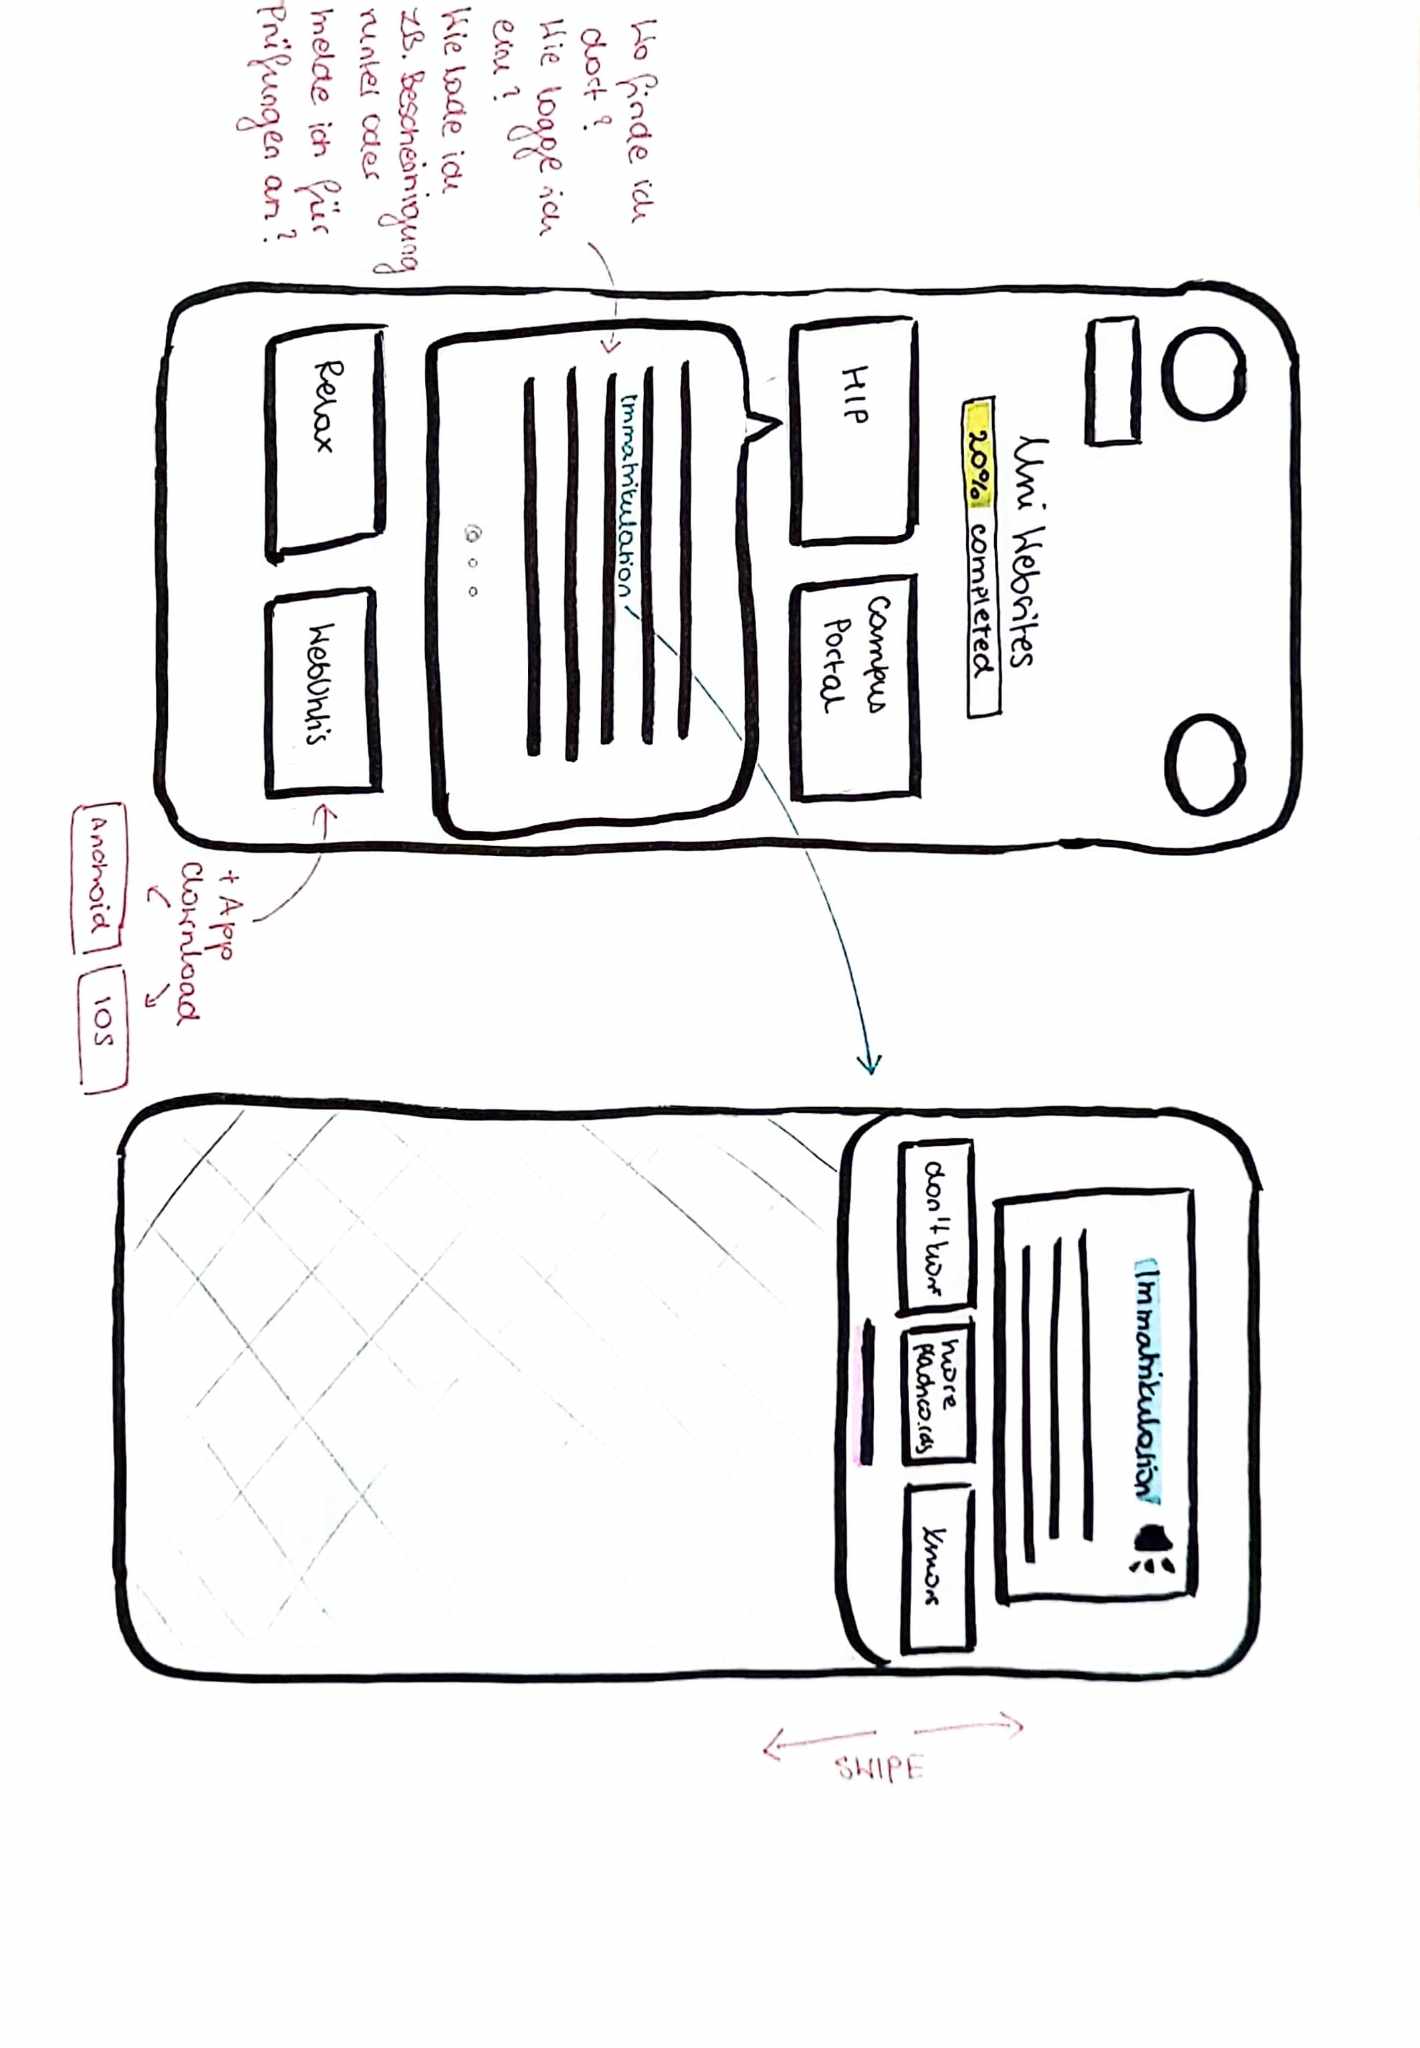 Uni Websites
20% completed
HIP
Campus
Portal
Immatrikulation
Relax
WebUntis
Wo finde ich
dort?
Wie logge ich
ein?
Wie lade ich
zB. Bescheinigung
runter oder
melde ich für
Prüfungen an?
+ App
download
Android
IOS
Immatrikulation
don't know
more
flashcards
know
SWIPE